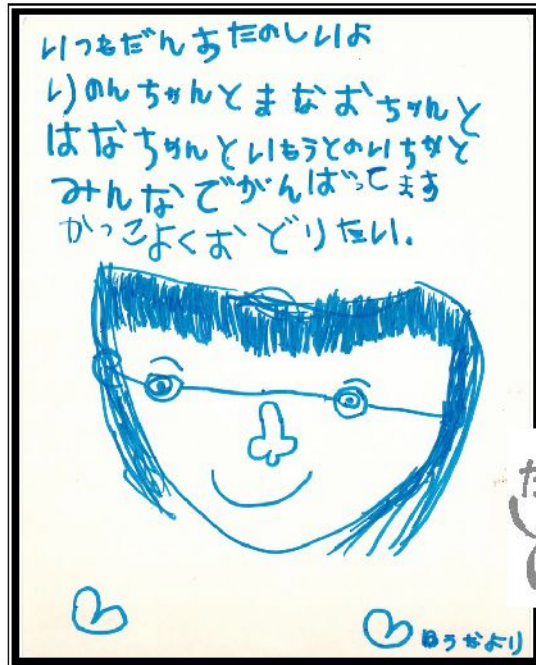 いつもだんすたのしいよ
りのんちゃんとまなおちゃんと
はなちゃんといもうとのいちかと
みんなでがんばってます
かっこよくおどりたい.
ほうなより
た